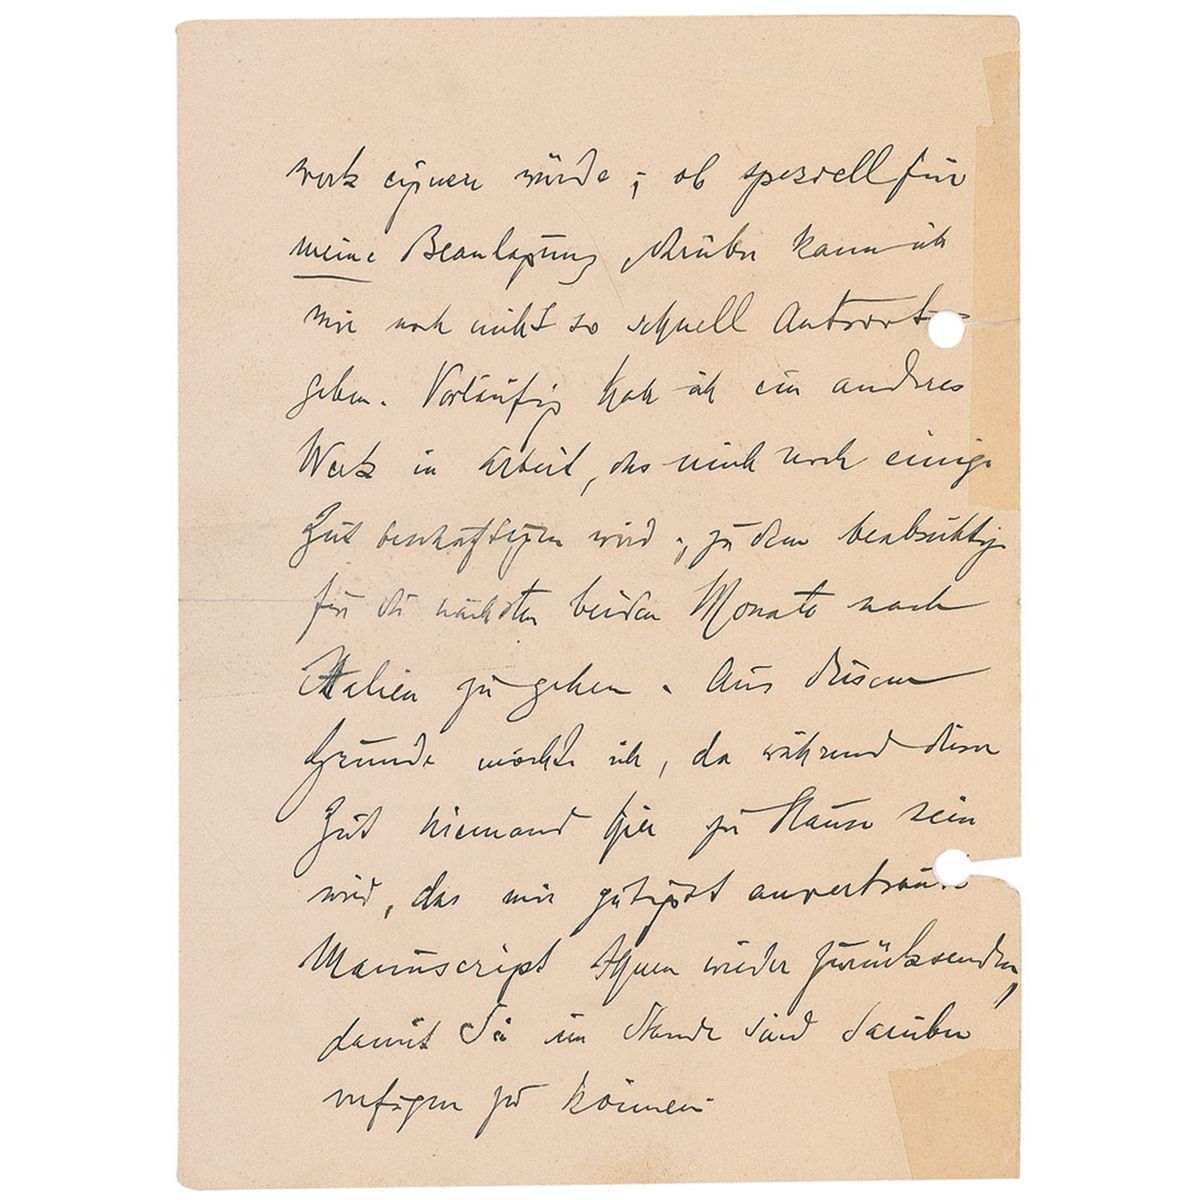 werk eignen würde; ob speziell für
meine Beanlagung darüber kann ich
mir noch nicht so schnell Antwort
geben. Vorläufig hab ich ein anderes
Werk in Arbeit, das mich noch einige
Zeit beschäftigen wird; zu dem beabsichtige
für die nächsten beiden Monate nach
Italien zu gehen. Aus diesem
Grunde möchte ich, da während dieser
Zeit niemand hier zu Hause sein
wird, das mir gütigst anvertraute
Manuscript Ihnen wieder zurücksenden,
damit Sie im Stande sind darüber
verfügen zu können